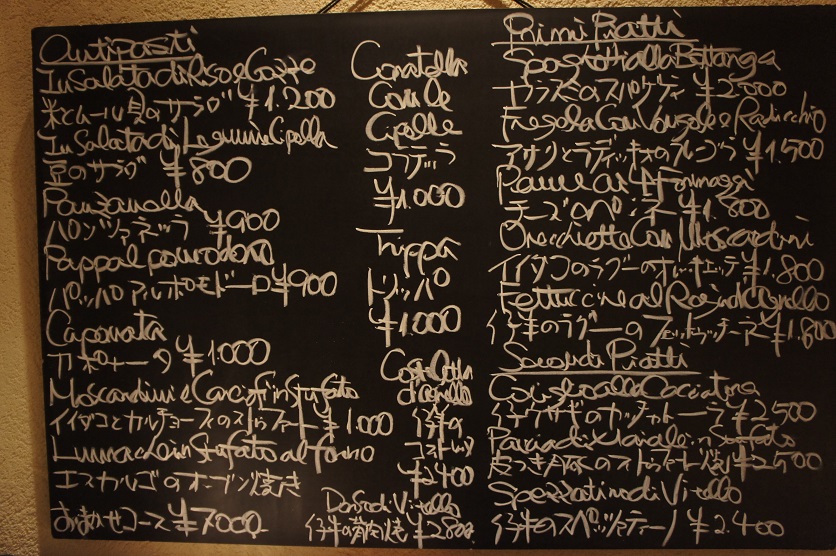 Antipasti
Insalata di Riso e Cozze
米とムール貝のサラダ ¥1.200
Insalata di Legume Cipolla
豆のサラダ ¥800
Panzanella
パンツァネッラ ¥900
Pappa al pomodoro
パッパ アル ポモドーロ ¥900
Caponata
カポナータ ¥1.000
Moscardini e Carciofi in Stufato
イイダコとカルチョーフのストゥファート ¥1.000
Lumache in Stufato al forno
エスカルゴのオーブン焼き
おまかせコース ¥7000
Coratella
Con le
Cipolle
コラテッラ
¥1.000
Trippa
トリッパ
¥1.000
Costoletta
d'agnello
仔羊の
コストレッタ
¥2400
Dorso di Vitello
¥2800
Primi Piatti
Spaghetti alla Bottarga
カラスミのスパゲティ ¥2000
Fregola Con Vongole e Radicchio
アサリとラディッキオのフレゴラ ¥1,500
チーズのペンネ ¥1.800
Orecchiette Con Moscardini
イイダコのラグーのオレキエッテ ¥1.800
Fettuccine al Ragù di Agnello
仔羊のラグーのフェットゥチーネ ¥1.800
Secondi Piatti
Coniglio alla Cacciatora
仔ウサギのカッチャトーラ ¥2500
Pancia di Maiale in Stufato
皮つき豚のストゥファート焼 ¥2500
Spezzatino di Vitello
仔牛のスペッツァティーノ ¥2.400